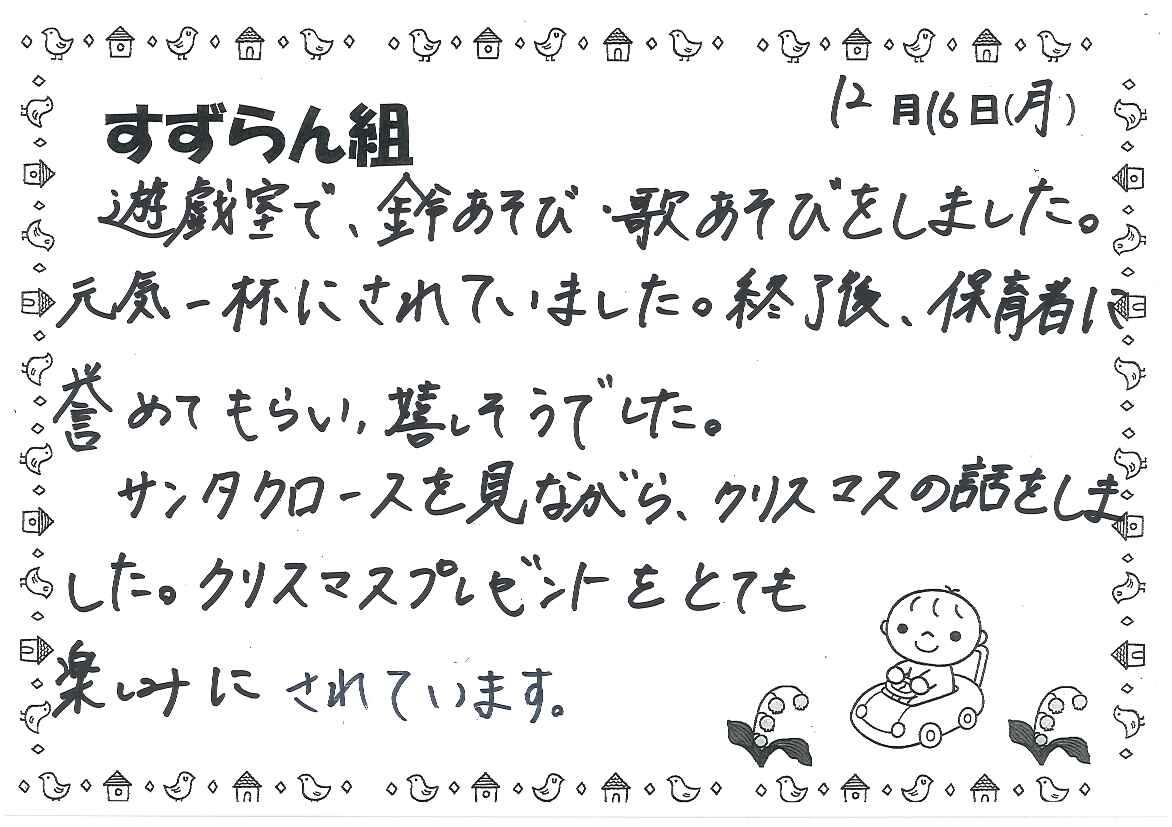 12月16日(月)
すずらん組
遊戯室で、鈴あそび・歌あそびをしました。
元気一杯にされていました。終了後、保育者に
誉めてもらい、嬉しそうでした。
サンタクロースを見ながら、クリスマスの話をしま
した。クリスマスプレゼントをとても
楽しみにされています。